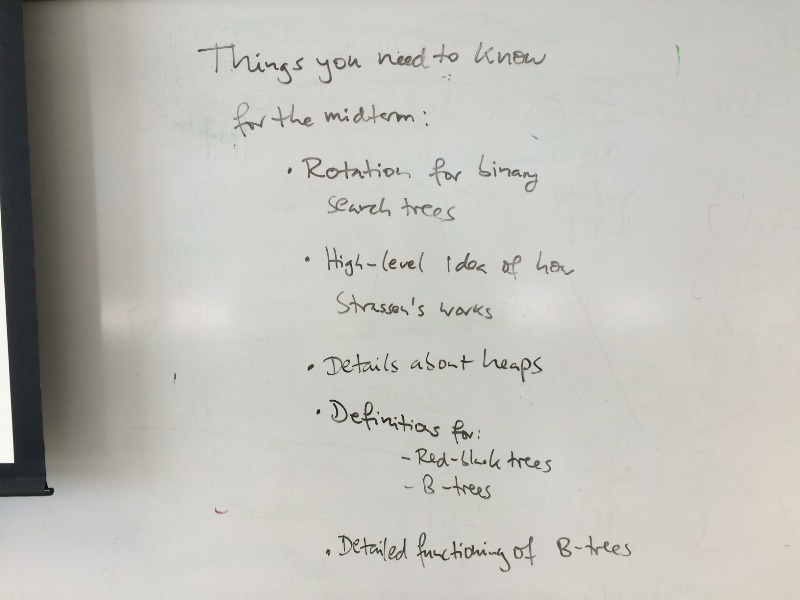 Things you need to know
for the midterm:
• Rotation for binary
search trees
• High-level idea of how
Strassen's works
• Details about heaps
• Definitions for:
- Red-black trees
- B-trees
• Detailed functioning of B-trees